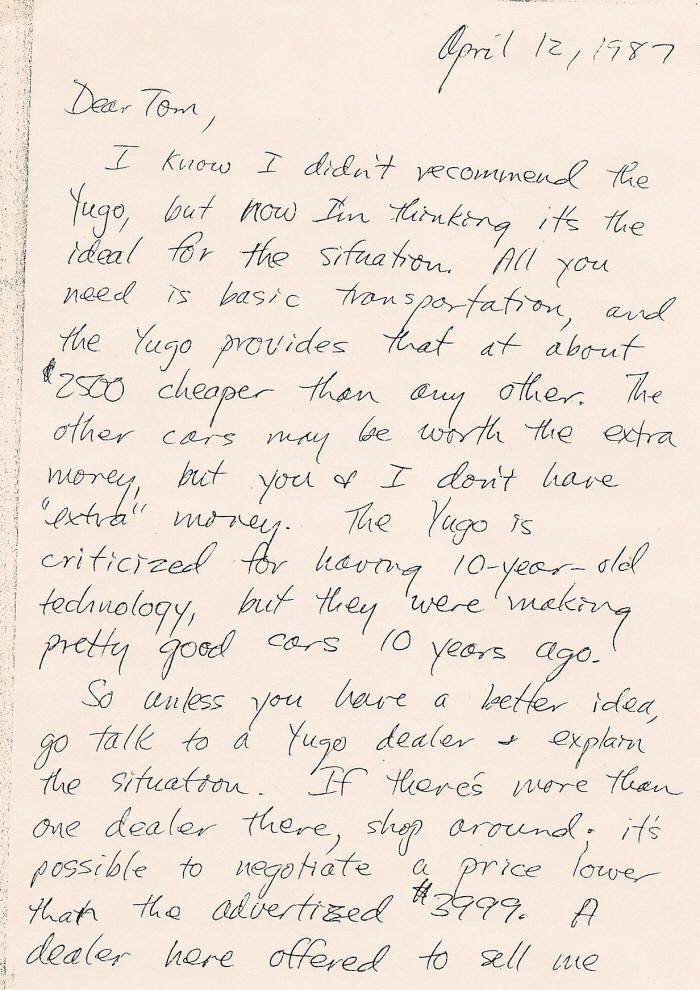 April 12, 1987
Dear Tom,
I know I didn't recommend the
Yugo, but now I'm thinking it's the
ideal for the situation. All you
need is basic transportation, and
the Yugo provides that at about
$2500 cheaper than any other. The
other cars may be worth the extra
money, but you & I don't have
"extra" money. The Yugo is
criticized for having 10-year-old
technology, but they were making
pretty good cars 10 years ago.
So unless you have a better idea,
go talk to a Yugo dealer & explain
the situation. If there's more than
one dealer there, shop around; it's
possible to negotiate a price lower
than the advertized $3999. A
dealer here offered to sell me